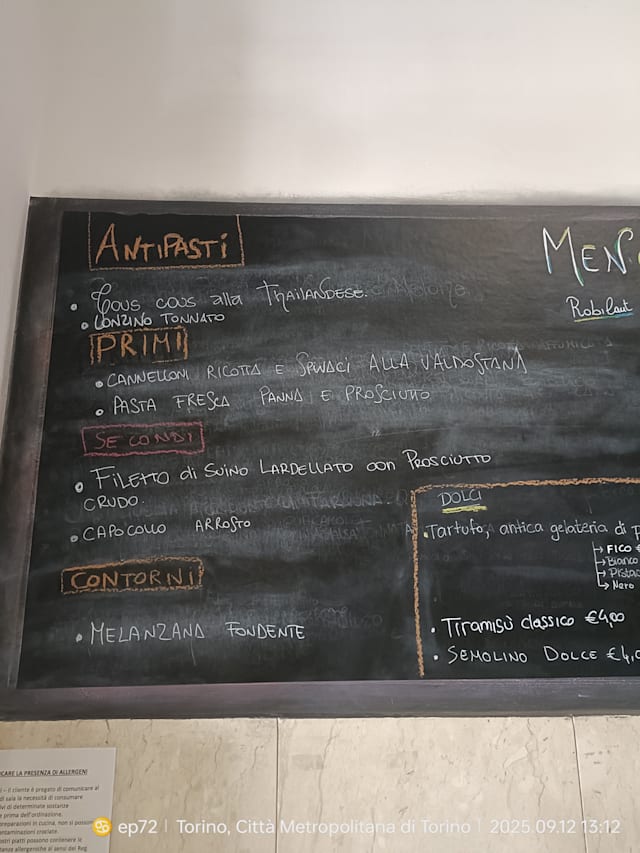 ANTIPASTI
• Cous cous alla THAILANDESE.
• LONZINO TONNATO
PRIMI
• CANNELLONI RICOTTA E SPINACI ALLA VALDOSTANA
• PASTA FRESCA PANNA E PROSCIUTTO
SECONDI
• FILETTO di SUINO LARDELLATO con PROSCIUTTO
CRUDO.
• CAPOCOLLO ARROSTO
CONTORNI
• MELANZANA FONDENTE
MEN
Robilant
DOLCI
• Tartufo, antica gelateria di
FICO
Bianco
Nero
• Tiramisù classico €4,00
• SEMOLINO DOLCE €4,0
CARE LA PRESENZA DI ALLERGENI
– il cliente è pregato di comunicare al
di sala la necessità di consumare
di determinate sostanze
prima dell'ordinazione.
preparazioni in cucina, non si
contaminazioni crociate.
piatti possono contenere le
allergeniche ai sensi del Reg
ep72 | Torino, Città Metropolitana di Torino | 2025.09.12 13:12